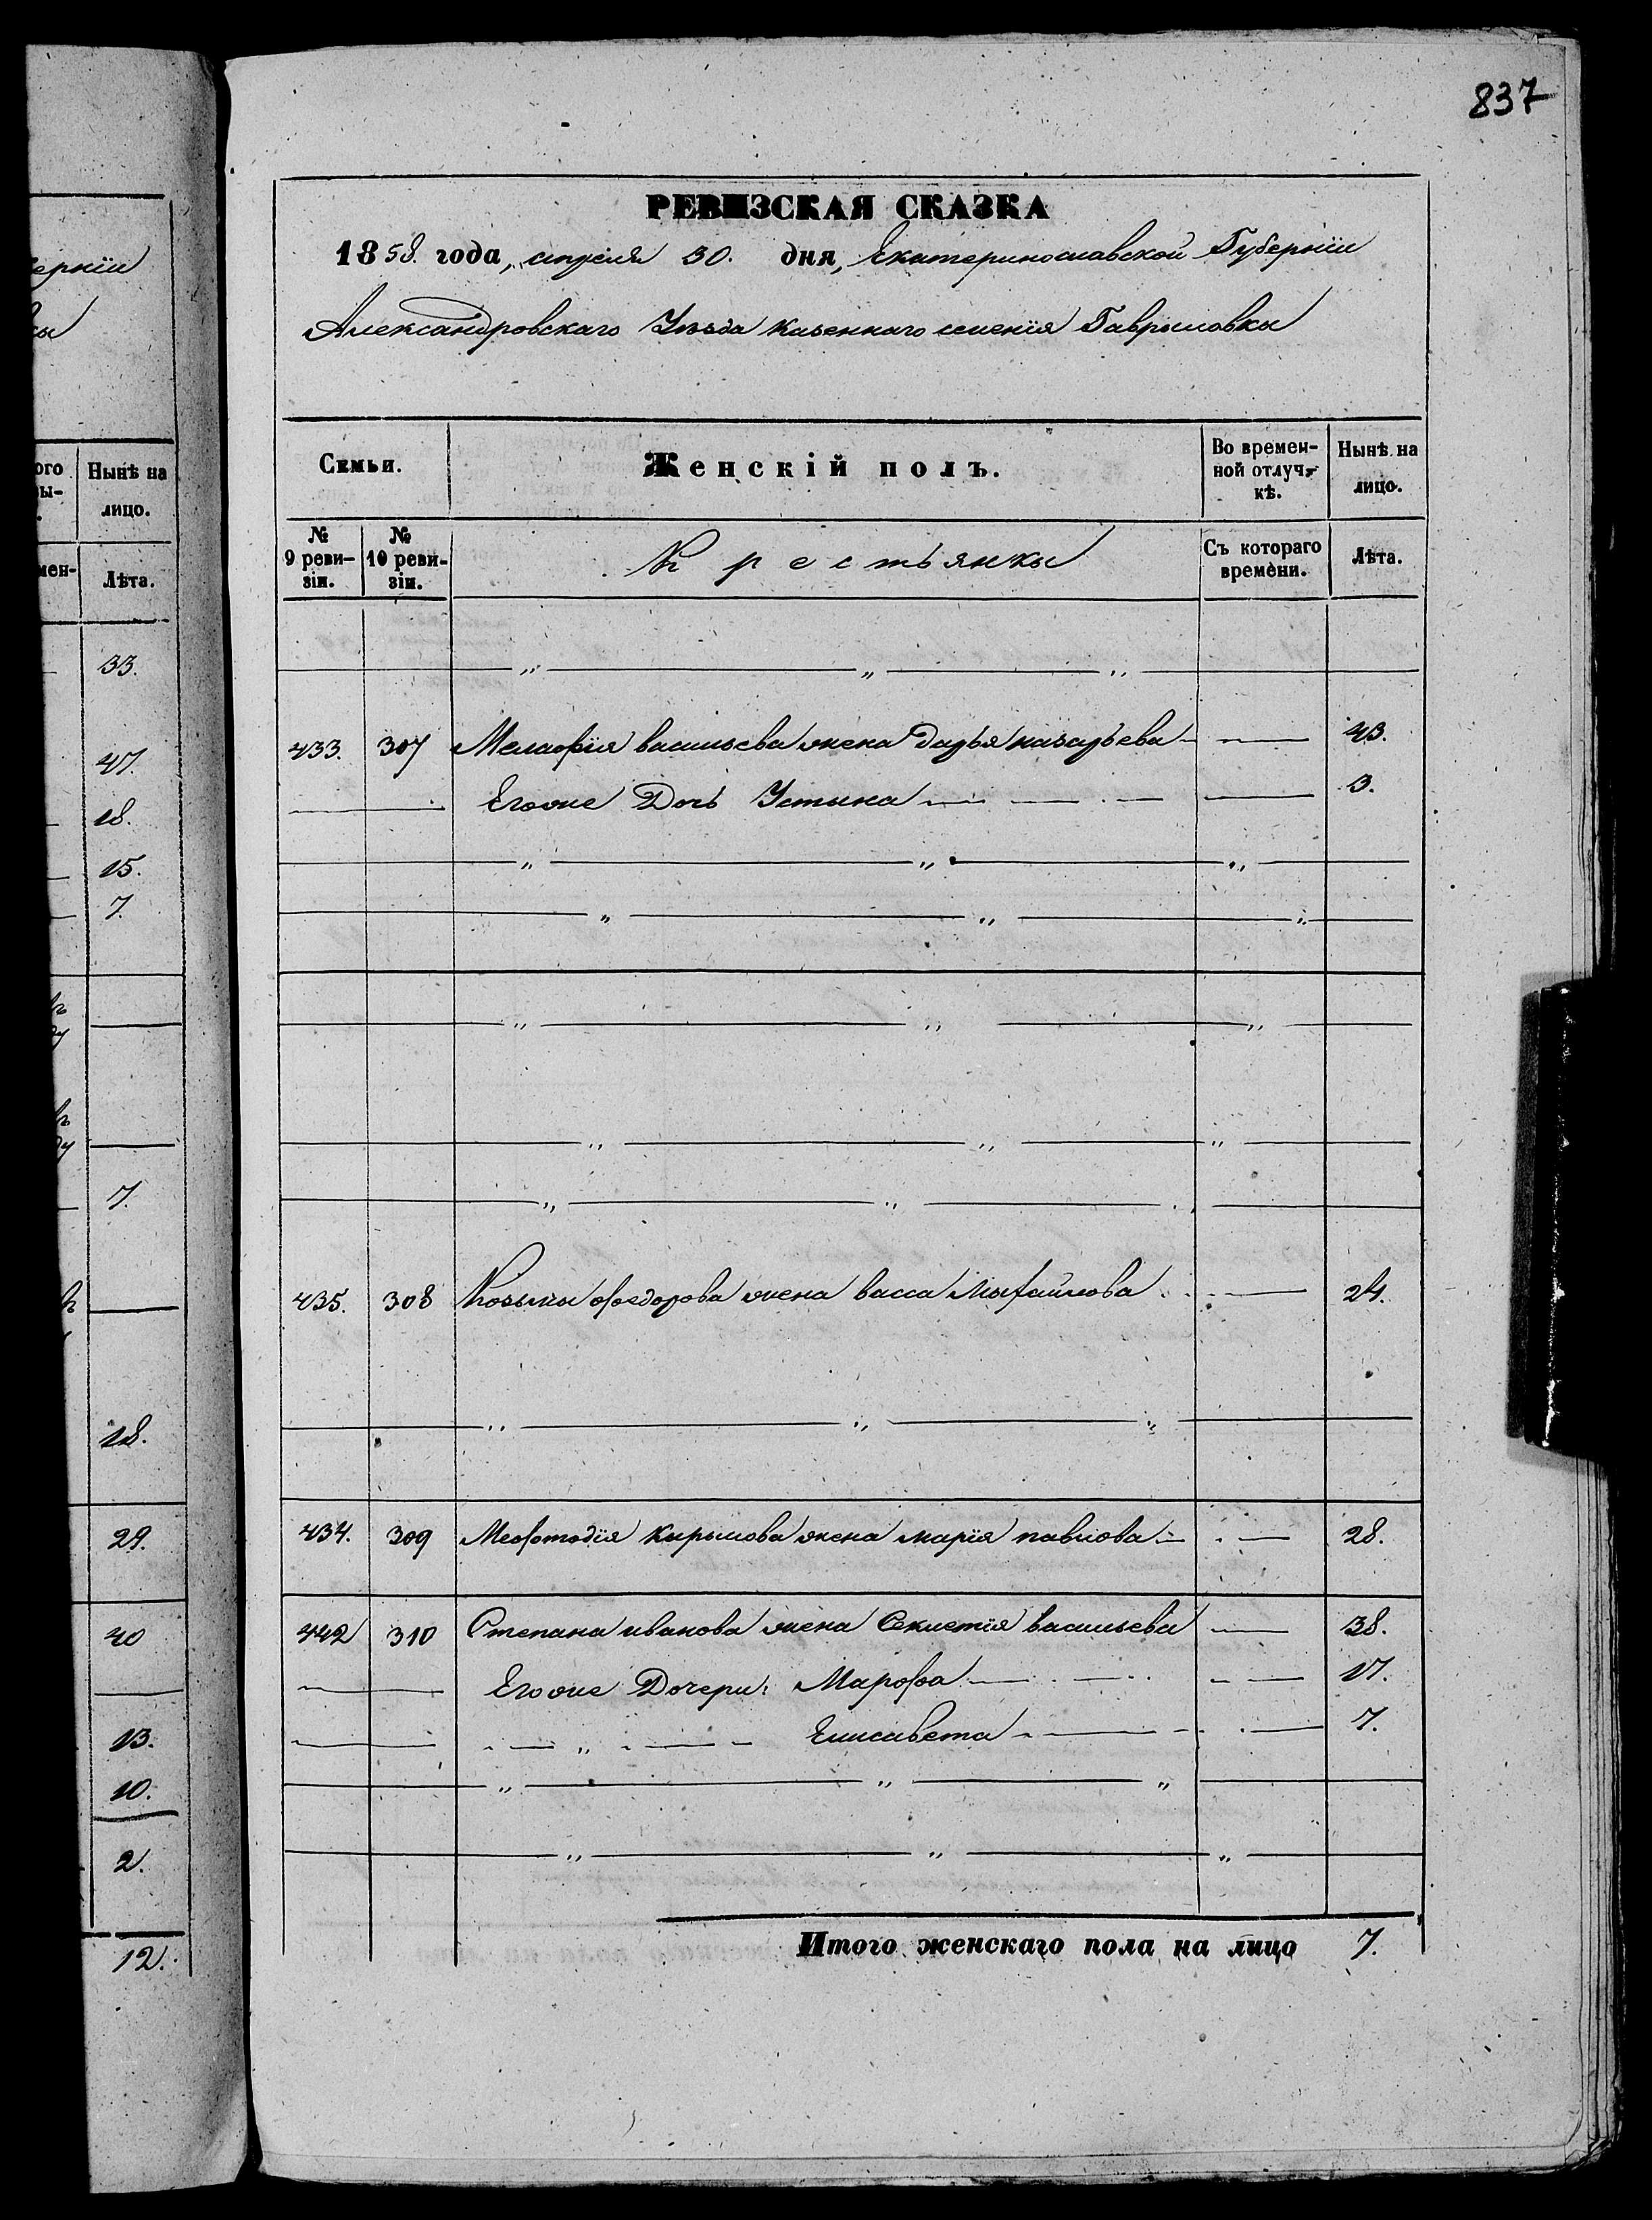 837
РЕВИЗСКАЯ СКАЗКА
1858. года, апреля 30. дня, Екатеринославской Губерніи
Александровскаго Уезда казеннаго селенія Гаврыловка
Семьи.
Женскій полъ.
Во времен-
ной отлуч-
кѣ.
Нынѣ на
лицо.
№
9 реви-
зіи.
№
10 реви-
зіи.
Крестьянки
Съ котораго
времени.
Лѣта.
433. 307 васильева жена Дарья назарьева 43.
Егоже Дочь Устына 3.
435. 308 Козьмы Фоедорова жена васса Мыхайлова 24.
434. 309 Мефотодія Кырылова жена марія павлова 28.
442 310 Степана иванова жена Секлетія васильева 38.
Егоже Дочери: Марфа 17.
" Елисавета 7.
Итого женскаго пола на лицо 7.
Нынѣ на
лицо.
Лѣта.
33.
47.
18.
15.
7.
7.
18.
29.
40
13.
10.
2.
12.